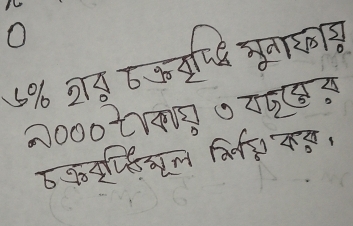 ৬% হার চক্রবৃদ্ধি মুনাফায়
৯০০০ টাকায় ৩ বছরের
চক্রবৃদ্ধিমূল নির্ণয় কর।